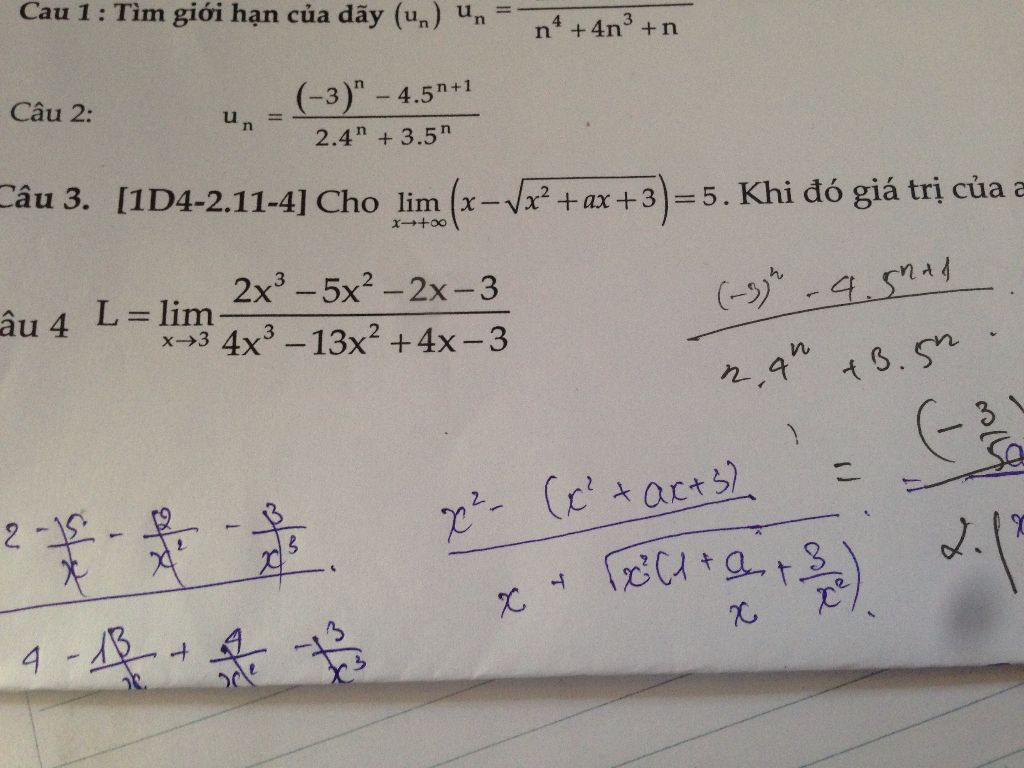 Câu 1 : Tìm giới hạn của dãy (uₙ) uₙ =
n⁴ + 4n³ + n
Câu 2: uₙ = ((−3)ⁿ − 4.5ⁿ⁺¹)/(2.4ⁿ + 3.5ⁿ)
Câu 3. [1D4-2.11-4] Cho lim x→+∞ (x − √(x² + ax + 3)) = 5. Khi đó giá trị của a
âu 4 L = lim x→3 (2x³ − 5x² − 2x − 3)/(4x³ − 13x² + 4x − 3)
(-3)ⁿ - 4.5ⁿ⁺¹
2.4ⁿ + 3.5ⁿ
= (-3/5
2.(
x² - (x² + ax + 3)
x + √(x²(1 + a/x + 3/x²))
2 - 5/x - 2/x² - 3/x³
4 - 13/x + 4/x² - 3/x³